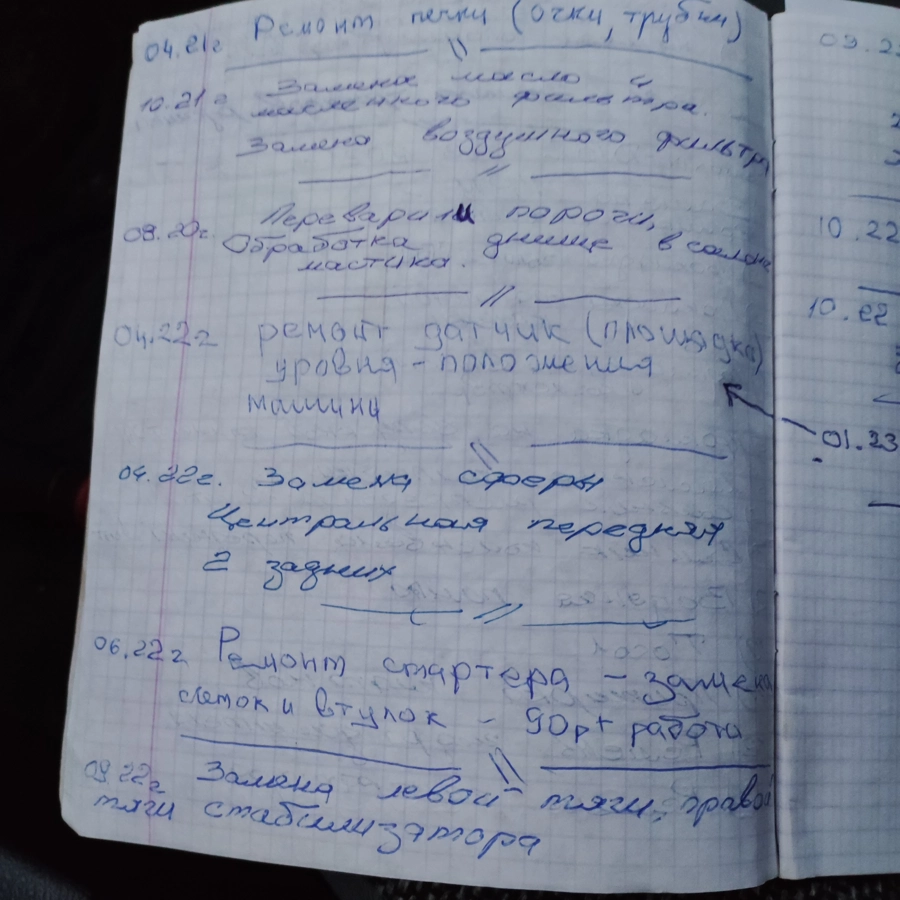 04.21г Ремонт печки (очки, трубки)
10.21г Замена масло и
масленного фильтра.
Замена воздушного фильтра
09.20г. Переварили пороги,
Обработка днище в салоне
мастика.
04.22г ремонт датчик (площадка)
уровня - положения
машины
04.22г. Замена сферы
Центральная передняя
2 задних
06.22г Ремонт стартера - замена
щеток и втулок - 90р + работа
09.22г Замена левой тяги, правой
тяги стабилизатора
09.2
10.22
10.22
01.23